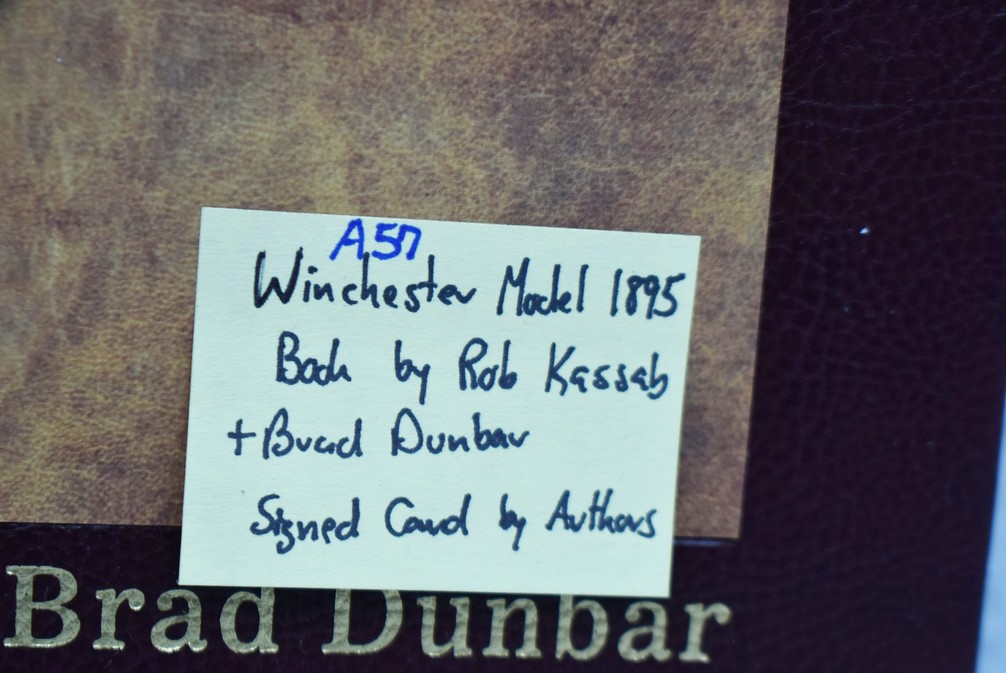 A57
Winchester Model 1895
Book by Rob Kassab
+ Brad Dunbar
Signed Card by Authors
Brad Dunbar